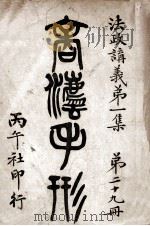 法政講義第一集 第二十九冊
商灋手形
丙午社印行